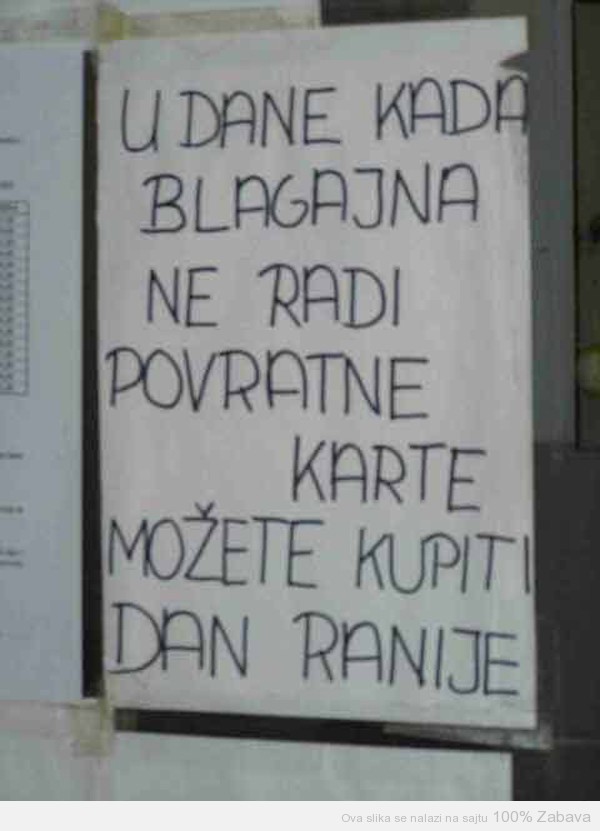 U DANE KADA
BLAGAJNA
NE RADI
POVRATNE
KARTE
MOŽETE KUPITI
DAN RANIJE
Ova slika se nalazi na sajtu 100% Zabava